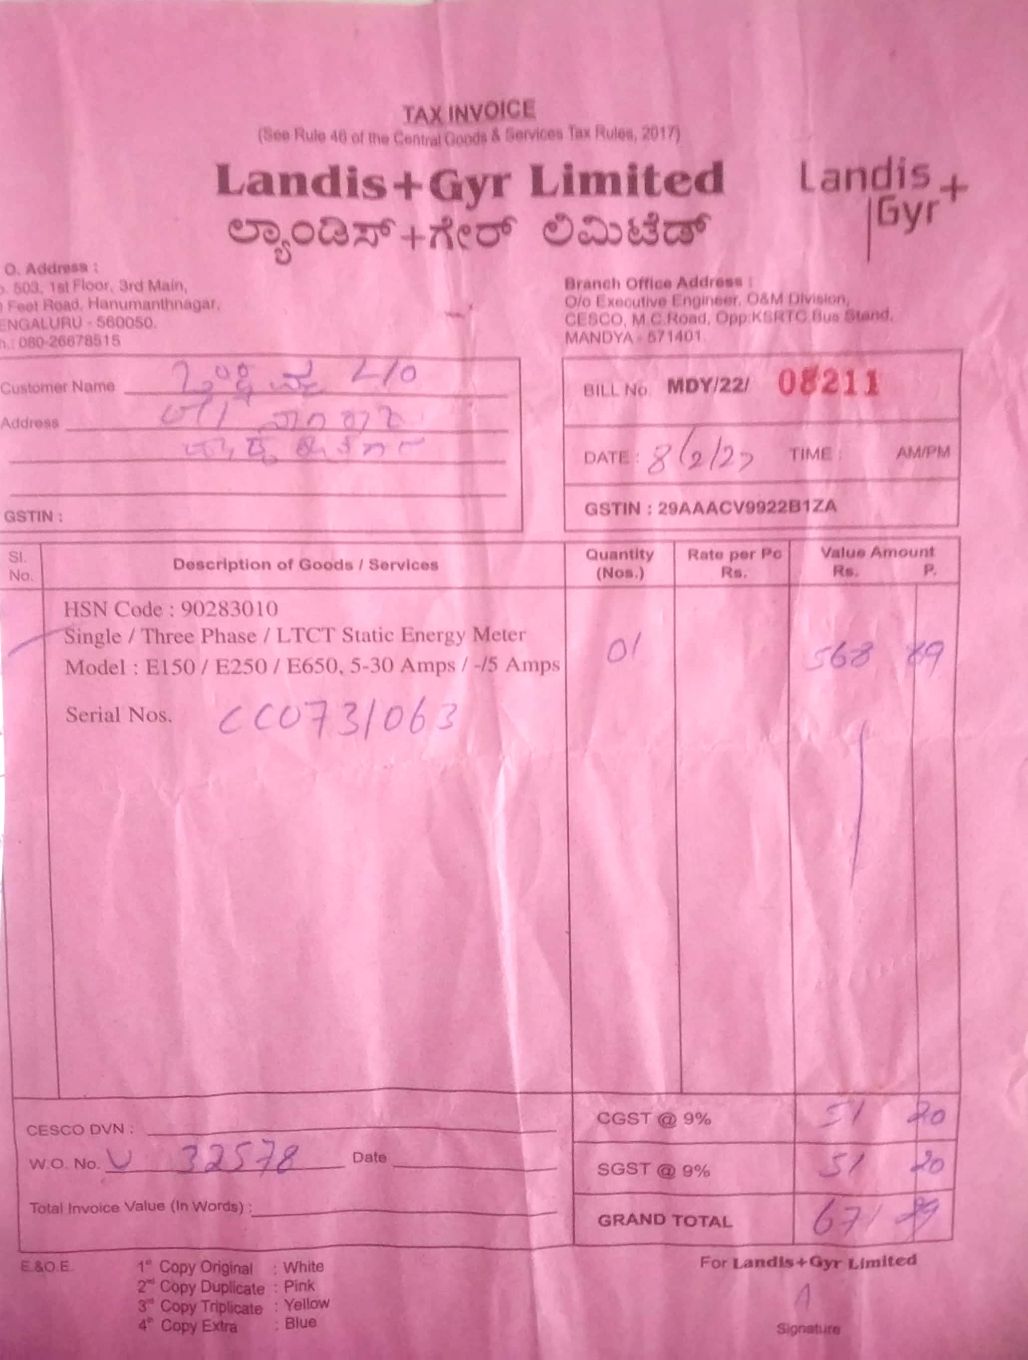 TAX INVOICE
(See Rule 46 of the Central Goods & Services Tax Rules, 2017)
Landis+Gyr Limited
ಲ್ಯಾಂಡಿಸ್+ಗೇರ್ ಲಿಮಿಟೆಡ್
Landis
Gyr+
O. Address :
503, 1st Floor, 3rd Main,
Feet Road, Hanumanthnagar,
ENGALURU - 560050.
h.: 080-26678515
Branch Office Address :
O/o Executive Engineer, O&M Division,
CESCO, M.C.Road, Opp.KSRTC Bus Stand,
MANDYA - 571401
Customer Name
Address
GSTIN :
BILL No. MDY/22/ 08211
DATE : 8/2/23 TIME : AM/PM
GSTIN : 29AAACV9922B1ZA
Sl. No. Description of Goods / Services Quantity (Nos.) Rate per Pc Rs. Value Amount Rs. P.
HSN Code : 90283010
Single / Three Phase / LTCT Static Energy Meter
Model : E150 / E250 / E650, 5-30 Amps / -/5 Amps 01 568 89
Serial Nos. CC0731063
CGST @ 9% 51 20
CESCO DVN :
W.O. No. U 32578 Date
SGST @ 9% 51 20
Total Invoice Value (In Words) :
GRAND TOTAL 671 29
E.&O.E.
1st Copy Original : White
2nd Copy Duplicate : Pink
3rd Copy Triplicate : Yellow
4th Copy Extra : Blue
For Landis+Gyr Limited
Signature